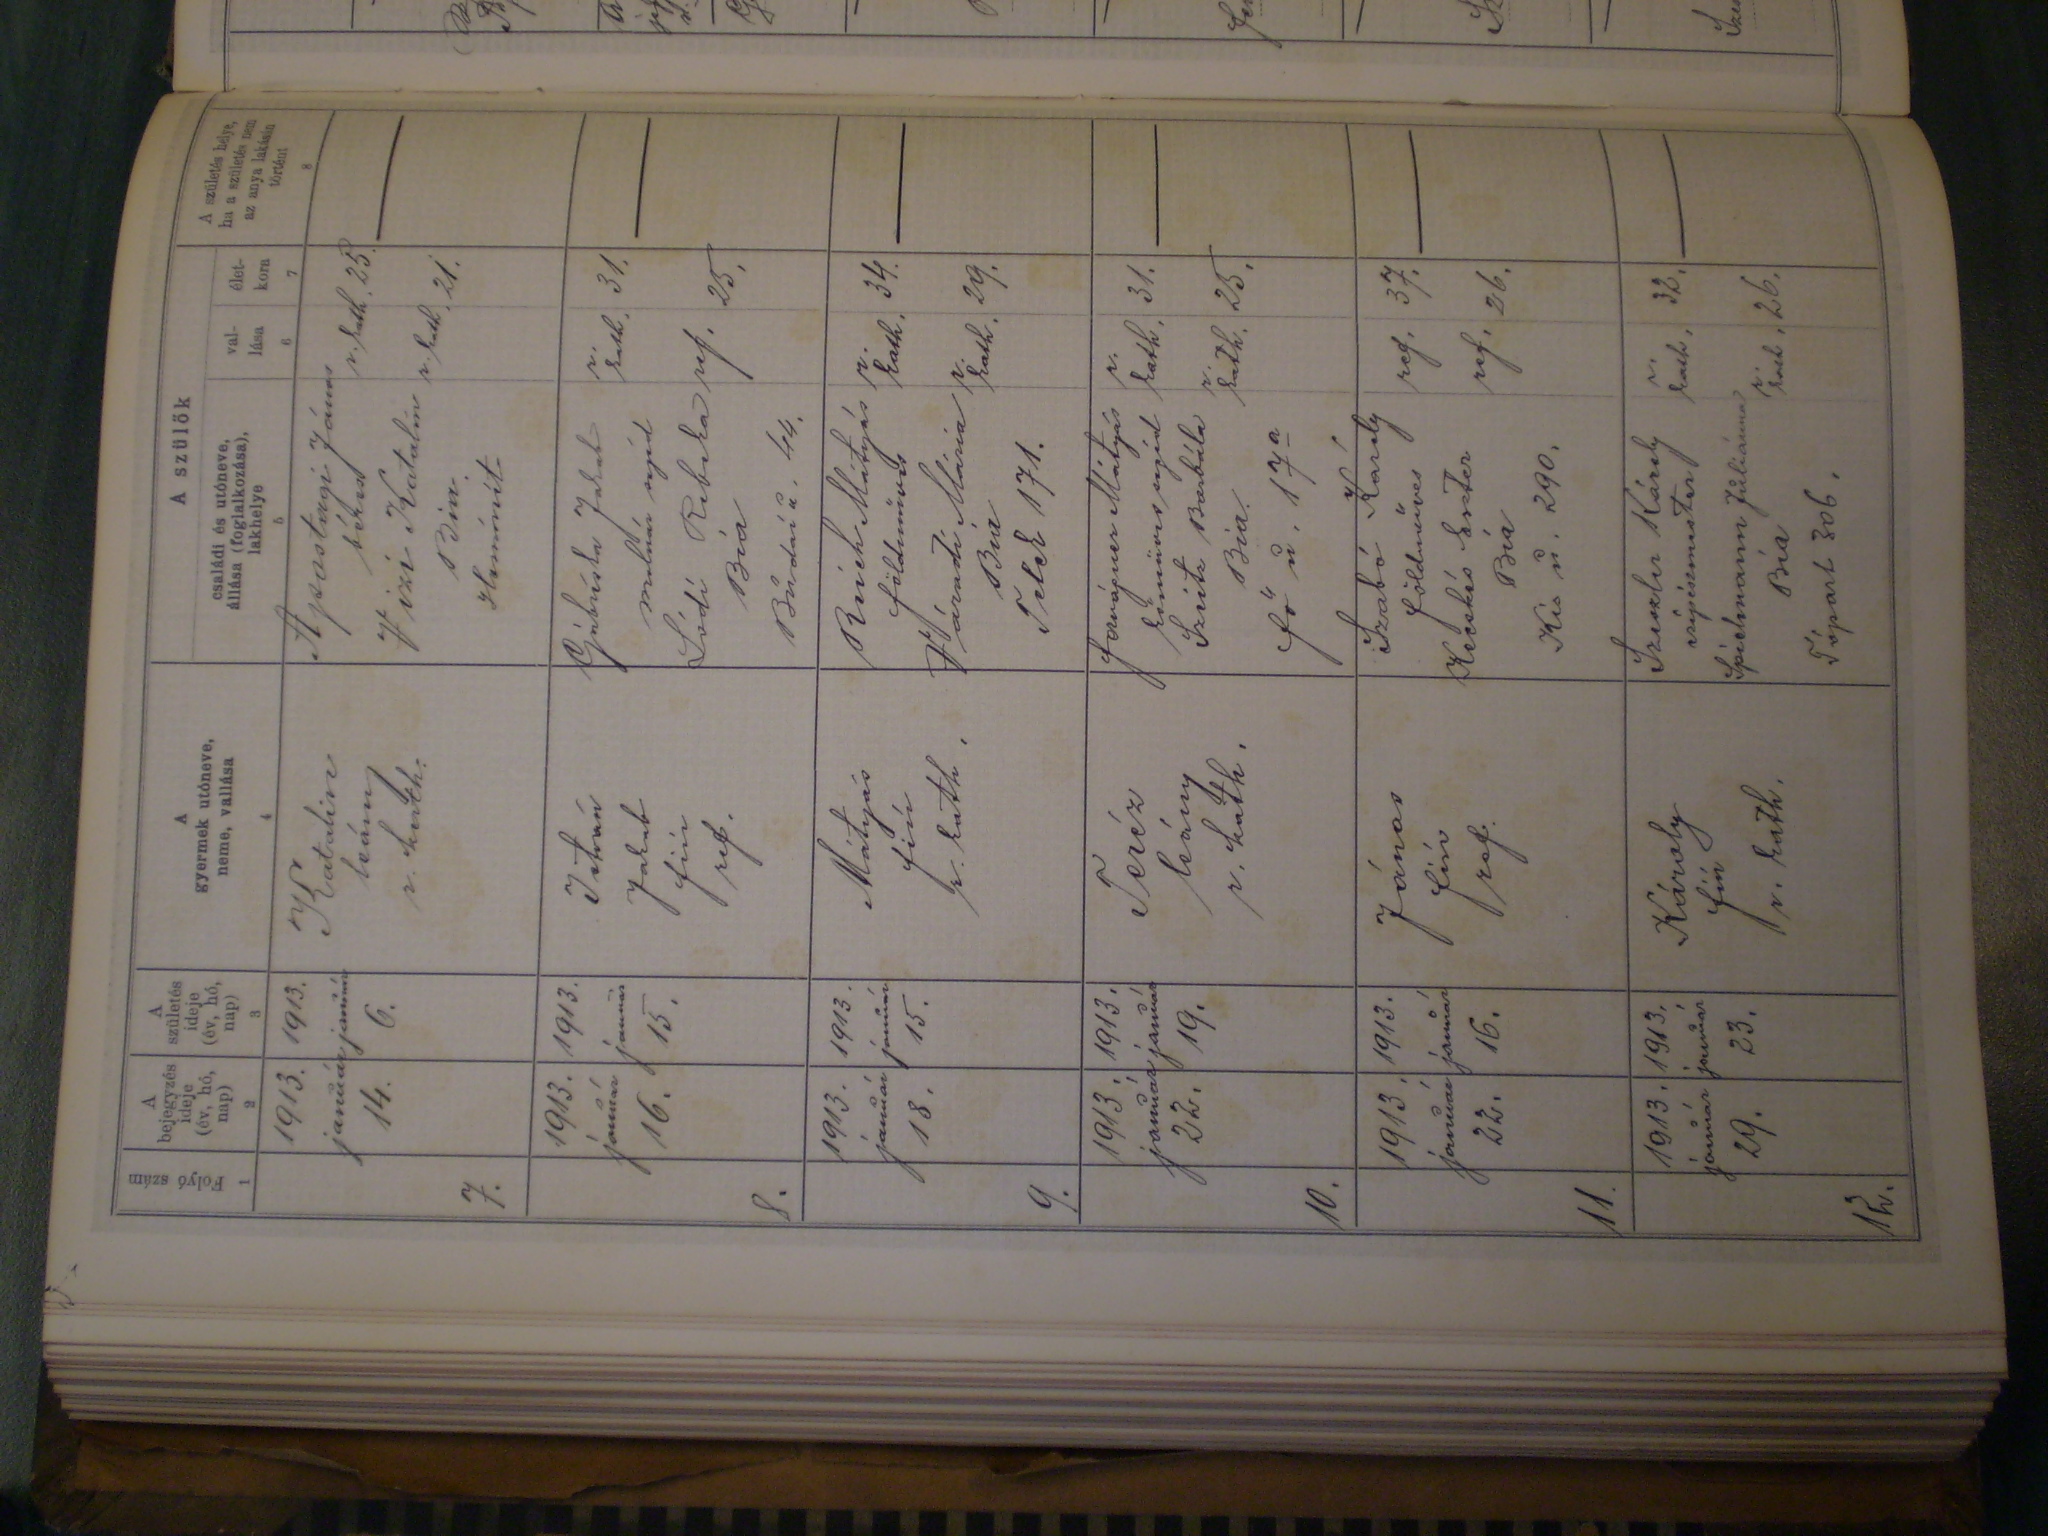 Folyó szám
1
A bejegyzés ideje (év, hó, nap)
2
A születés ideje (év, hó, nap)
3
A gyermek utóneve, neme, vallása
4
A szülők
családi és utóneve, állása (foglalkozása), lakhelye
5
vallása
6
életkora
7
A születés helye, ha a születés nem az anya lakásán történt
8
7.
1913.
január
14.
1913.
január
6.
Katalin
leány
r. kath.
Apostagi János
béres
Vizi Katalin
Bia.
r. kath.
25.
r. kath.
21.
8.
1913.
január
16.
1913.
január
15.
István
Jakab
fiú
ref.
Jakab
molnár segéd
Ládi Rebeka
Bia
44.
r.
kath.
31.
ref.
25.
9.
1913.
január
18.
1913.
január
15.
Mátyás
fiú
r. kath.
Mátyás
földműves
Váradi Mária
Bia
Telek 171.
r.
kath.
34.
r.
kath.
29.
10.
1913.
január
22.
1913.
január
19.
Teréz
leány
r. kath.
Mátyás
kőműves segéd
Borbála
Bia.
Fő u. 17a
r.
kath.
31.
r.
kath.
25.
11.
1913.
január
22.
1913.
január
16.
János
fiú
ref.
Szabó Károly
földműves
Kecskés Eszter
Bia
Kis u. 290.
ref.
37.
ref.
26.
12.
1913.
január
29.
1913.
január
23.
Károly
fiú
r. kath.
Károly
cipészmester
Spielmann Juliánna
Bia
Tópart 306.
r.
kath.
32.
r.
kath.
26.